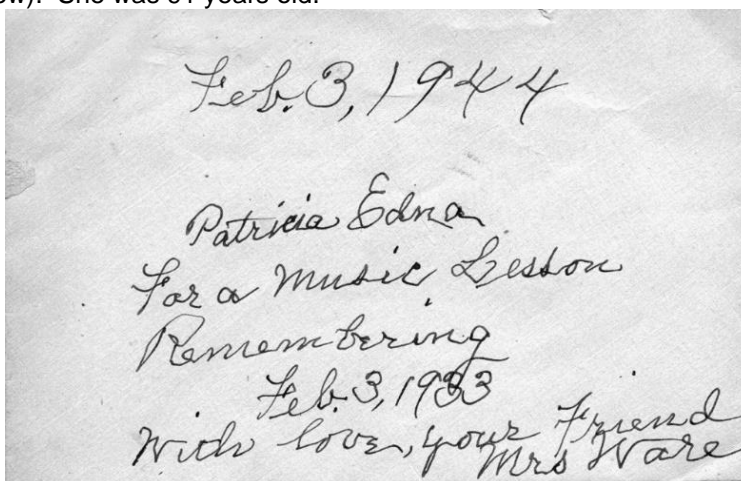 She was 91 years old.
Feb. 3, 1944
Patricia Edna
For a Music Lesson
Remembering
Feb. 3, 1933
With love, your Friend
Mrs Ware